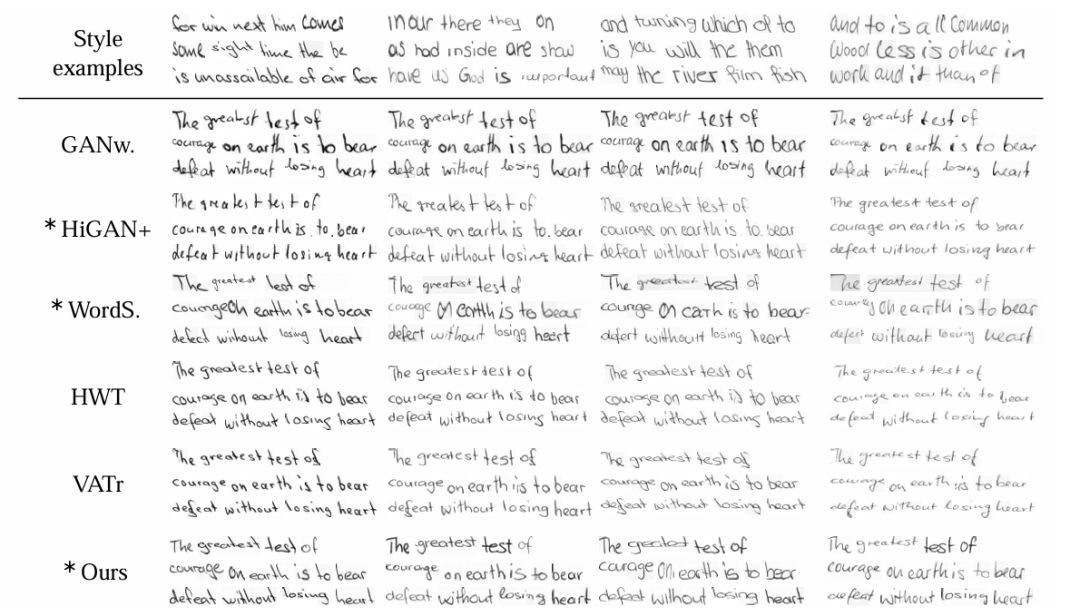 Style examples
for win next him comes
same sight time the be
is unassailable of air for
in our there they on
as had inside are show
have us God is important
and turning which of to
is you will the them
may the river film fish
and to is all Common
Wood Less is other in
work and it than of
GANw.
The greatest test of
courage on earth is to bear
defeat without losing heart
The greatest test of
courage on earth is to bear
defeat without losing heart
The greatest test of
courage on earth is to bear
defeat without losing heart
The greatest test of
courage on earth is to bear
defeat without losing heart
* HiGAN+
The greatest test of
courage on earth is to. bear
defeat without losing heart
The greatest test of
courage on earth is to. bear
defeat without losing heart
The greatest test of
courage on earth is to. bear
defeat without losing heart
The greatest test of
courage on earth is to bear
defeat without losing heart
* WordS.
The greatest test of
courage on earth is to bear
defect without losing heart
The greatest test of
courage on earth is to bear
defect without losing heart
The greatest test of
courage on earth is to bear
defert without losing heart
The greatest test of
on earth is to bear
defect without losing heart
HWT
The greatest test of
courage on earth is to bear
defeat without losing heart
The greatest test of
courage on earth is to bear
defeat without losing heart
The greatest test of
courage on earth is to bear
defeat without losing heart
The greatest test of
courage on earth is to bear
defeat without losing heart
VATr
The greatest test of
courage on earth is to bear
defeat without losing heart
The greatest test of
courage on earth is to bear
defeat without losing heart
The greatest test of
courage on earth is to bear
defeat without losing heart
The greatest test of
courage on earth is to bear
defeat without losing heart
* Ours
The greatest test of
courage on earth is to bear
defeat without losing heart
The greatest test of
courage on earth is to bear
defeat without losing heart
The greatest test of
courage on earth is to bear
defeat without losing heart
The greatest test of
courage on earth is to bear
defeat without losing heart